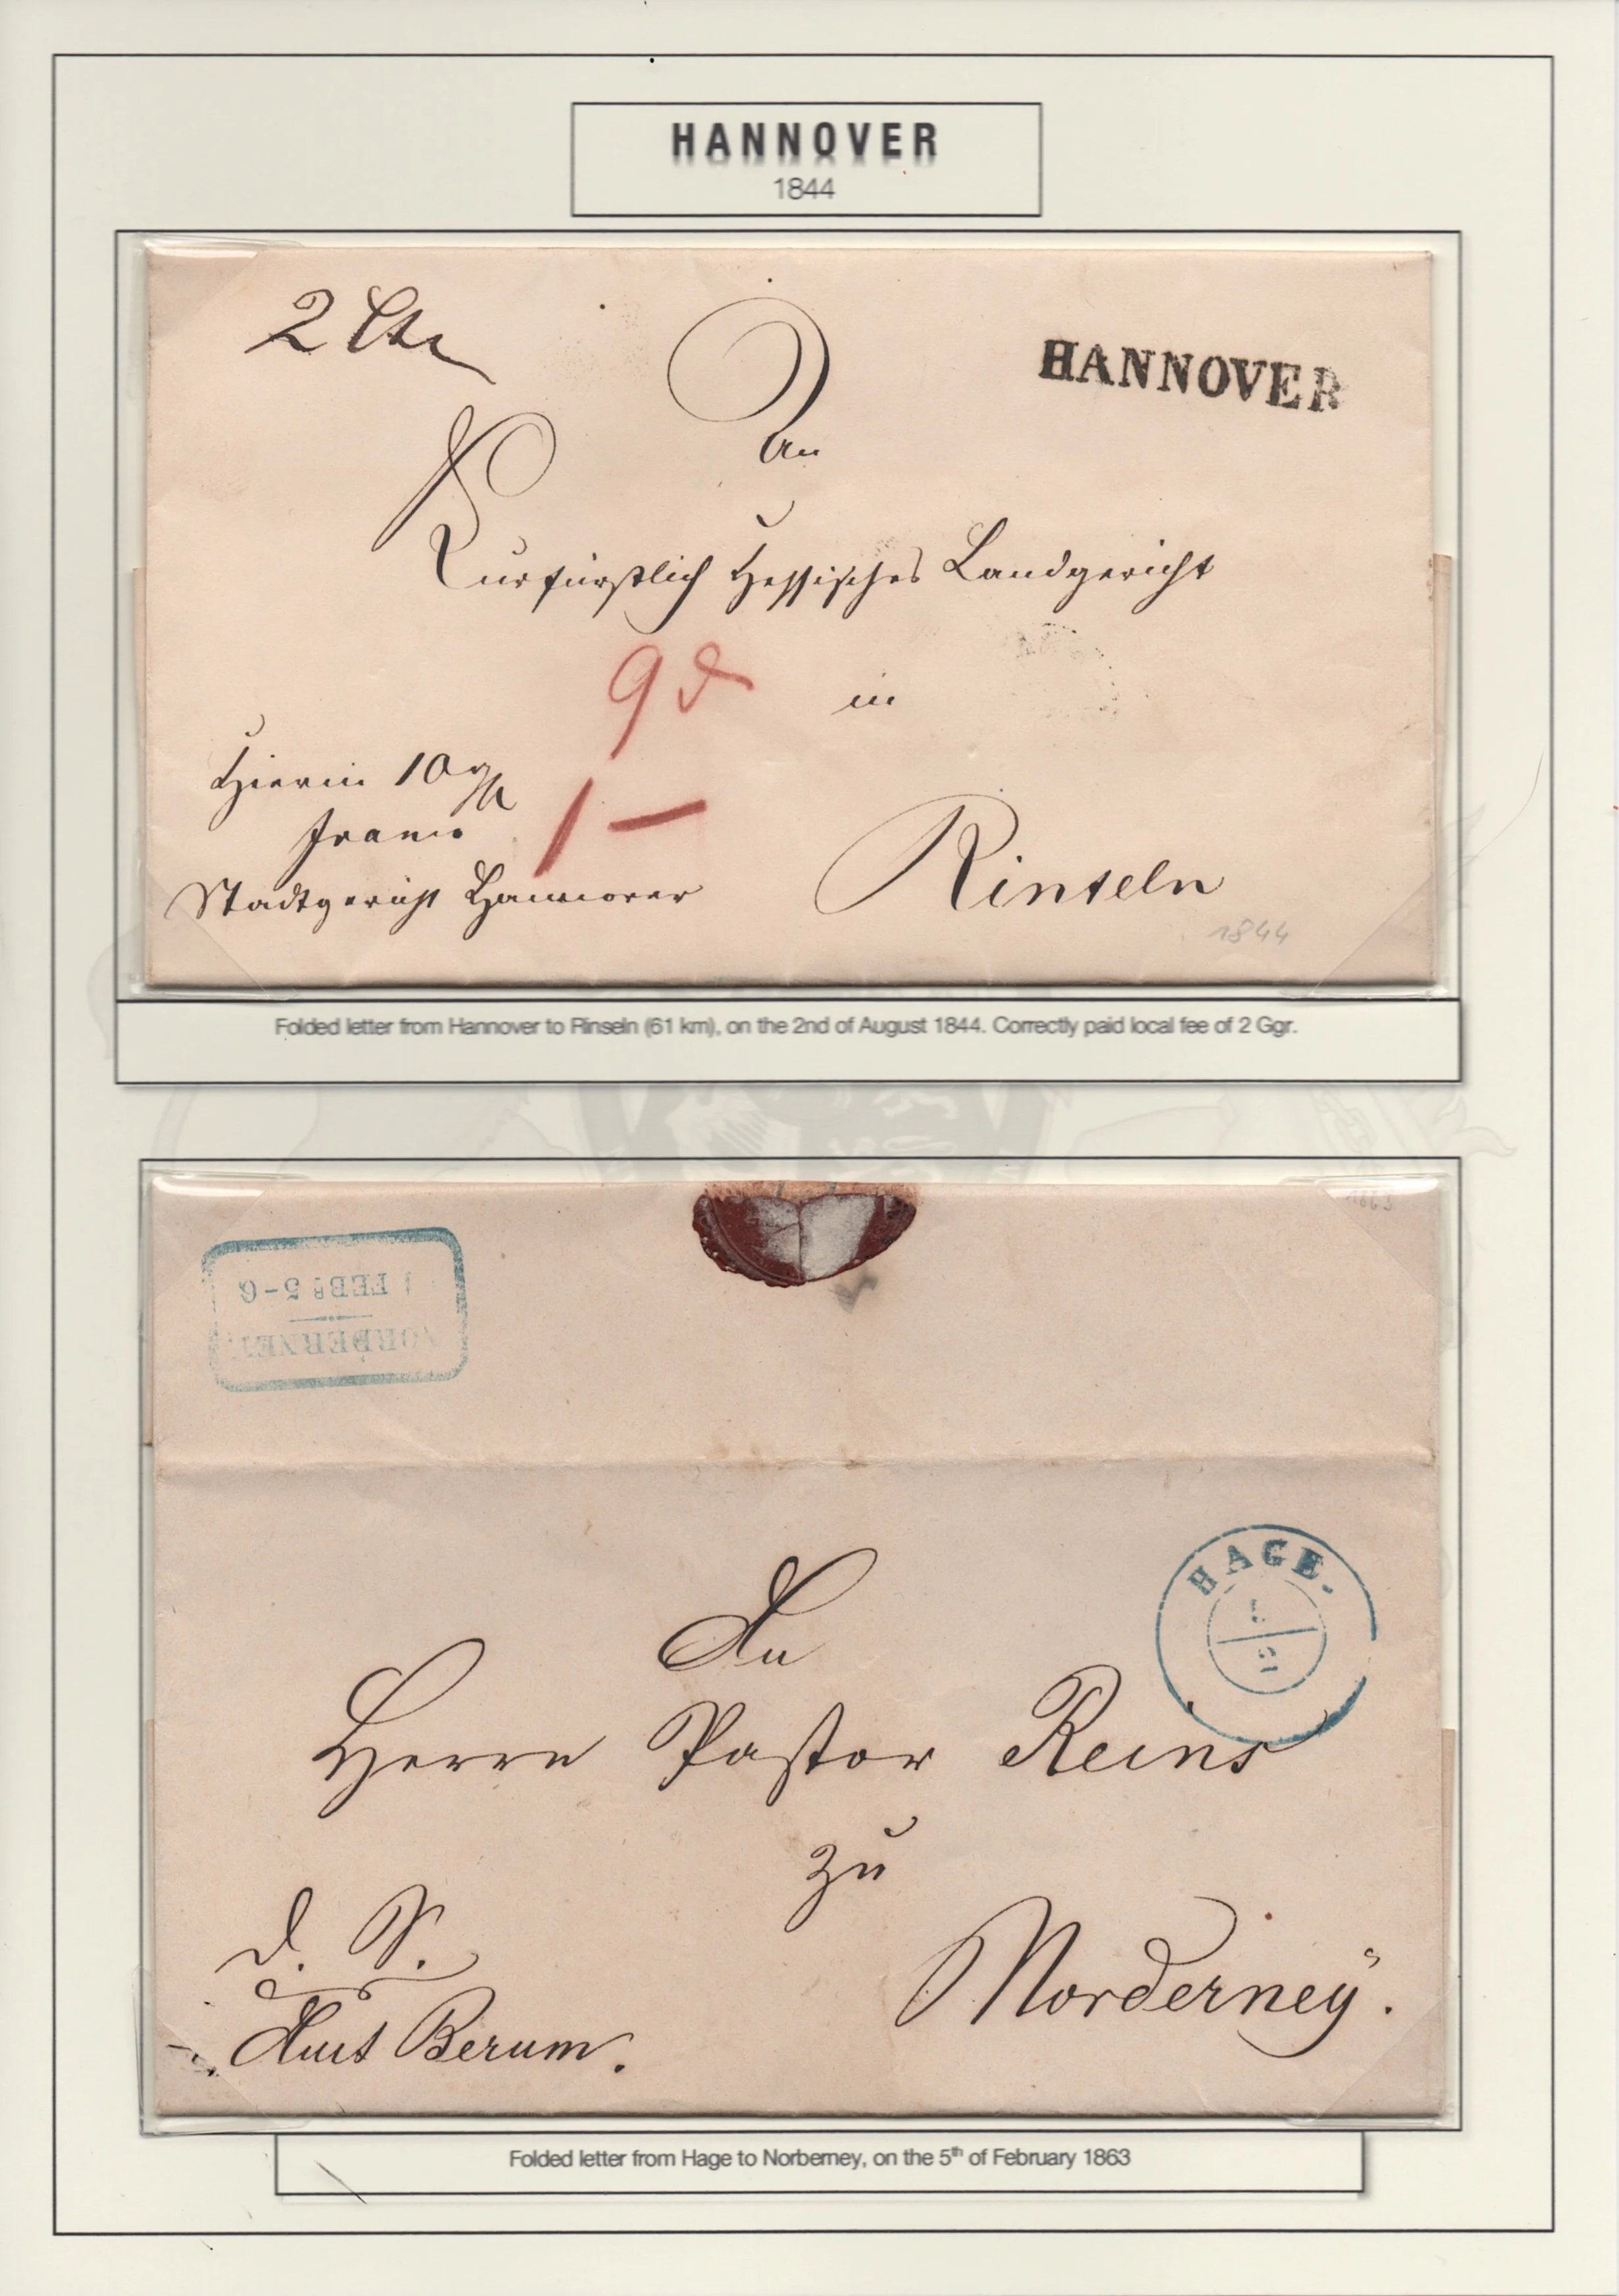 HANNOVER
1844
2 Lth
HANNOVER
An
Kurfürstlich Hessisches Landgericht
9
in
Hierin 10
franco
1 –
Stadtgericht Hannover
Rinteln
1844
Folded letter from Hannover to Rinseln (61 km), on the 2nd of August 1844. Correctly paid local fee of 2 Ggr.
NORDERNEY
FEB 5-6
HAGE.
An
Herrn Pastor Reins
zu
d. S.
Norderney.
Amt Berum.
Folded letter from Hage to Norberney, on the 5th of February 1863